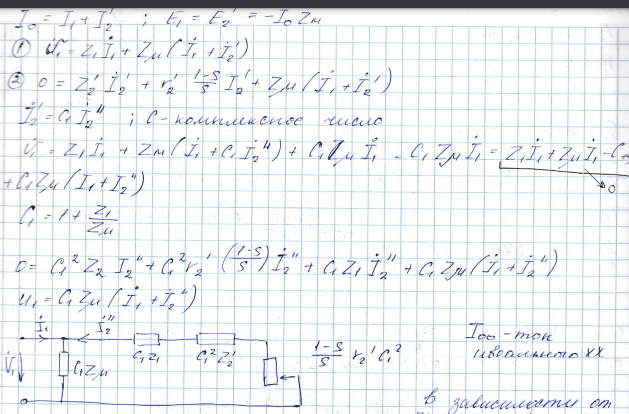 İ₀ = İ₁ + İ₂' ; E₁ = E₂' = -I₀ Zм
① U̇₁ = Z₁İ₁ + Zм (İ₁ + İ₂')
② 0 = Z₂' İ₂' + r₂' (1-S)/S İ₂' + Zм (İ₁ + İ₂')
İ₂' = C₁ İ₂'' ; C - комплексное число
U̇₁ = Z₁İ₁ + Zм (İ₁ + C₁İ₂'') + C₁Zм İ₁ - C₁Zм İ₁ = Z₁İ₁ + Zм İ₁ - C₁
+ C₁Zм (İ₁ + İ₂'') → 0
C₁ = 1 + Z₁/Zм
0 = C₁² Z₂ İ₂'' + C₁² r₂' ((1-S)/S) İ₂'' + C₁ Z₁ İ₂'' + C₁ Zм (İ₁ + İ₂'')
U₁ = C₁ Zм (İ₁ + İ₂'')
İ₁ İ₂'' C₁Z₁ C₁²Z₂' (1-S)/S r₂' C₁²
U̇₁ C₁Zм
I₀₀ - ток
идеального хх
в зависимости от